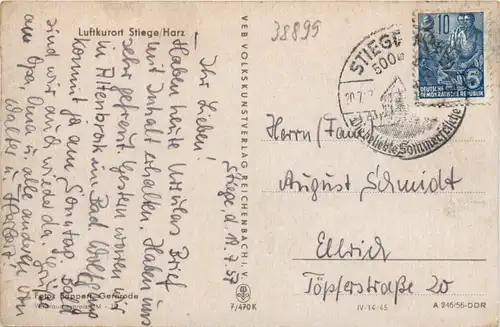 Luftkurort Stiege/Harz
Stiege, d. 19.7.57
Ihr Lieben!
Haben heute Ursulas Brief
mit Inhalt erhalten. Haben uns
sehr gefreut. Gestern waren wir
in Altenbrak im Bad.
kommt ja am Sonntag. Bald
sind wir auch wieder da. Grüße
an Opa, Oma u. alle anderen von
Walter u.
Gernrode
VEB VOLKSKUNSTVERLAG REICHENBACH i. V.
7/470 K
38899
STIEGE
500m
20.7.
Die beliebte Sommerfrische
10
5
DEUTSCHE
DEMOKRATISCHE REPUBLIK
Herrn/Familie
August Schmidt
Ellrich
Töpferstraße 20
IV-14-45
A 245-55-DDR